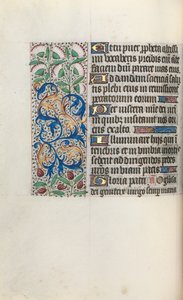 Et tu puer ppheta altissimi
vocaberis preibis enī ante
faciem dūi parare vias eius
Ad dandam sciencia salu
tis plebi eius in remissione
peccatorum eorum
Per viscera mie dei nri
in quibȝ visitauit nos ori
ens ex alto
Illuminare hijs qui in
tenebris et in vmbra mortis
sedent ad dirigendos pedes
nros in viam pacis
Gloria patri